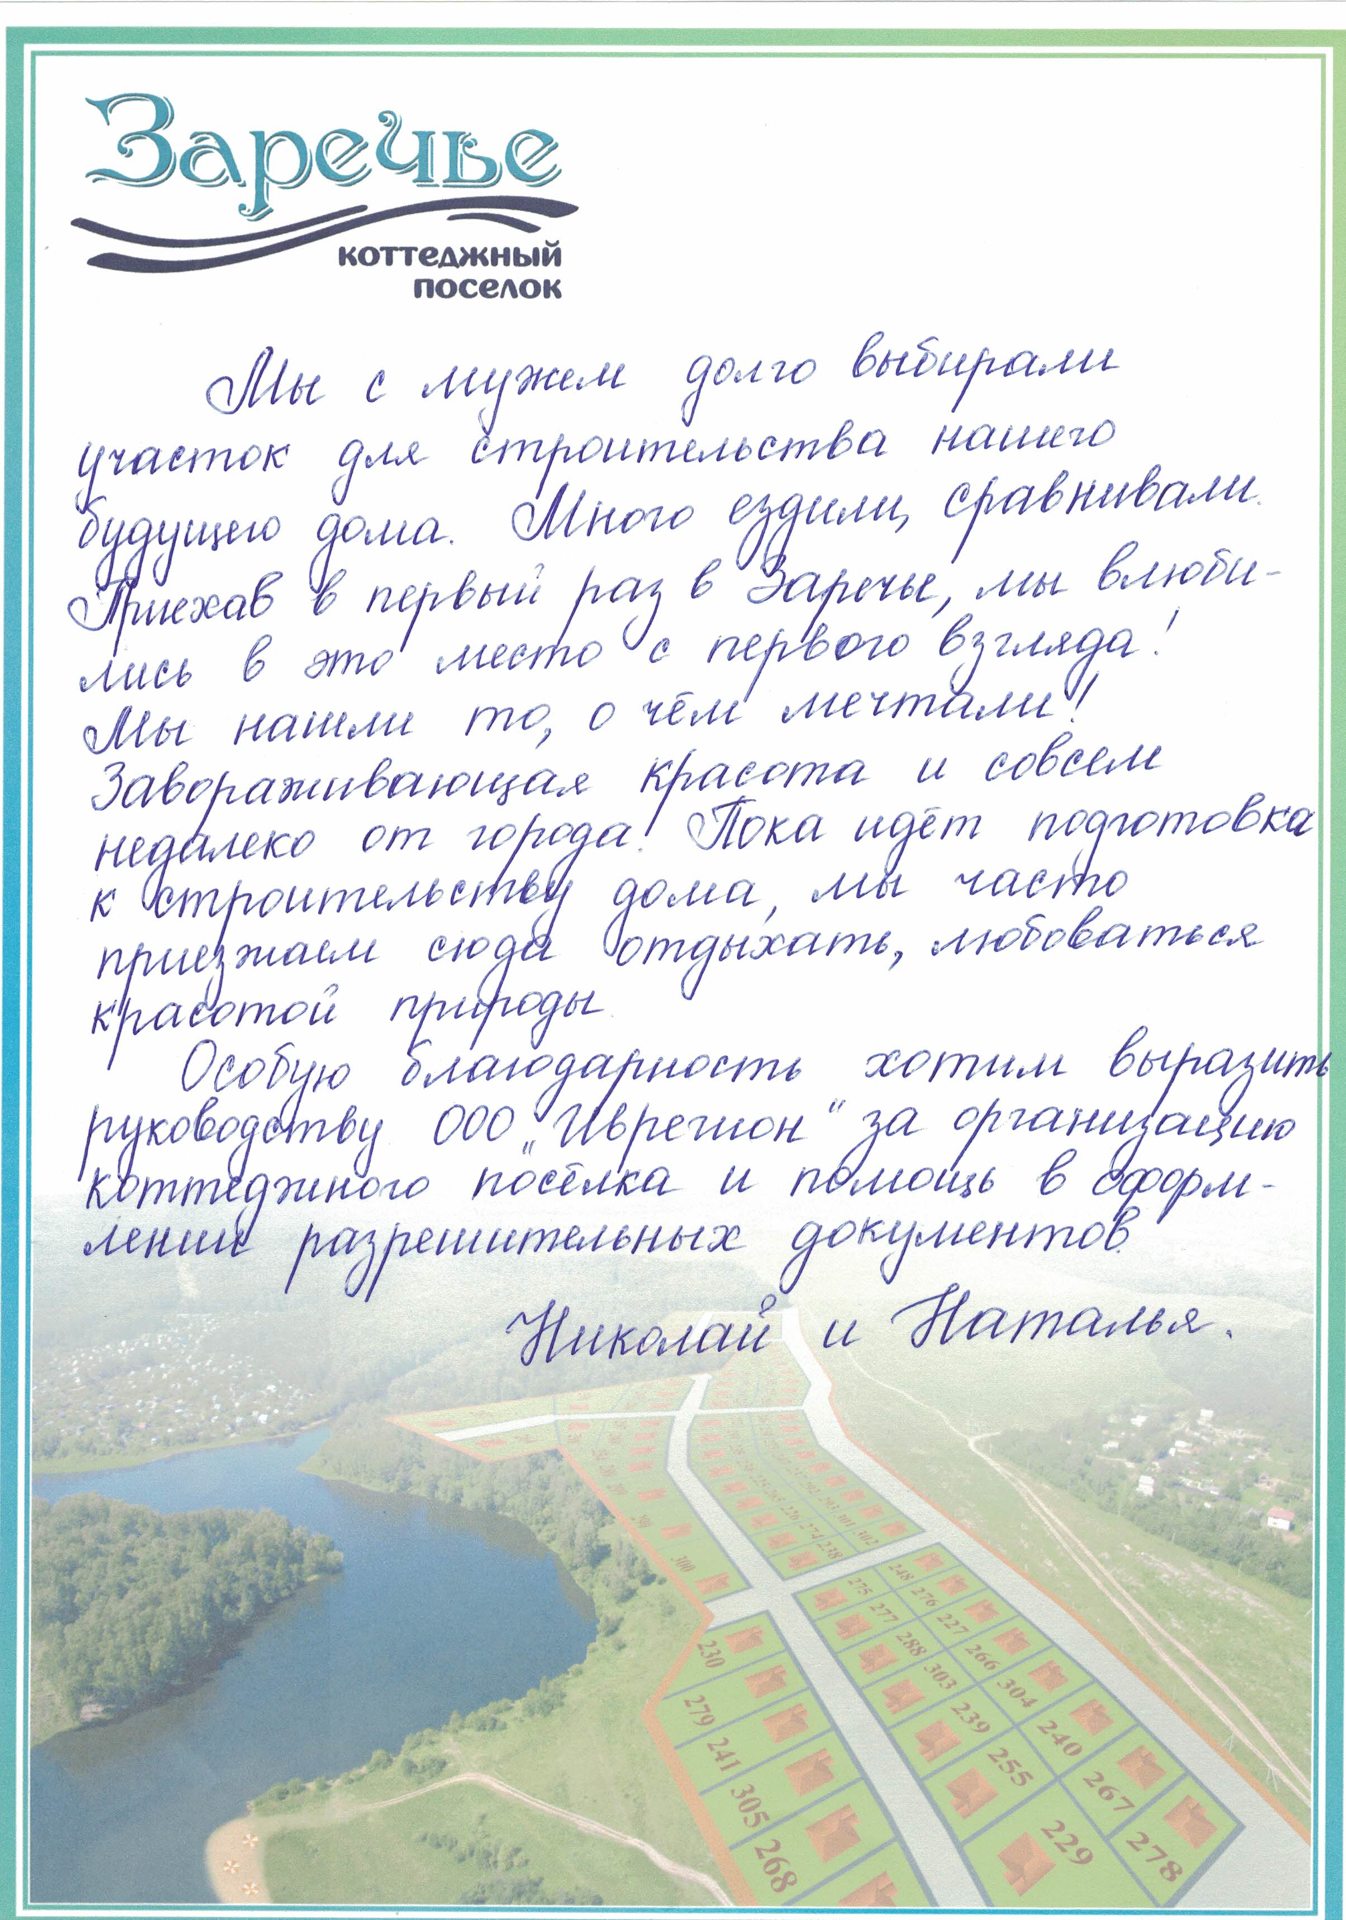 Заречье
коттеджный
поселок
Мы с мужем долго выбирали
участок для строительства нашего
будущего дома. Много ездили, сравнивали.
Приехав в первый раз в Заречье, мы влюби-
лись в это место с первого взгляда!
Мы нашли то, о чём мечтали!
Завораживающая красота и совсем
недалеко от города! Пока идёт подготовка
к строительству дома, мы часто
приезжаем сюда отдыхать, любоваться
красотой природы.
Особую благодарность хотим выразить
руководству ООО „Иврегион" за организацию
коттеджного посёлка и помощь в оформ-
лении разрешительных документов.
Николай и Наталья.
302
238
300
248
275
276
277
227
230
288
266
303
304
279
239
240
241
255
267
305
229
278
268